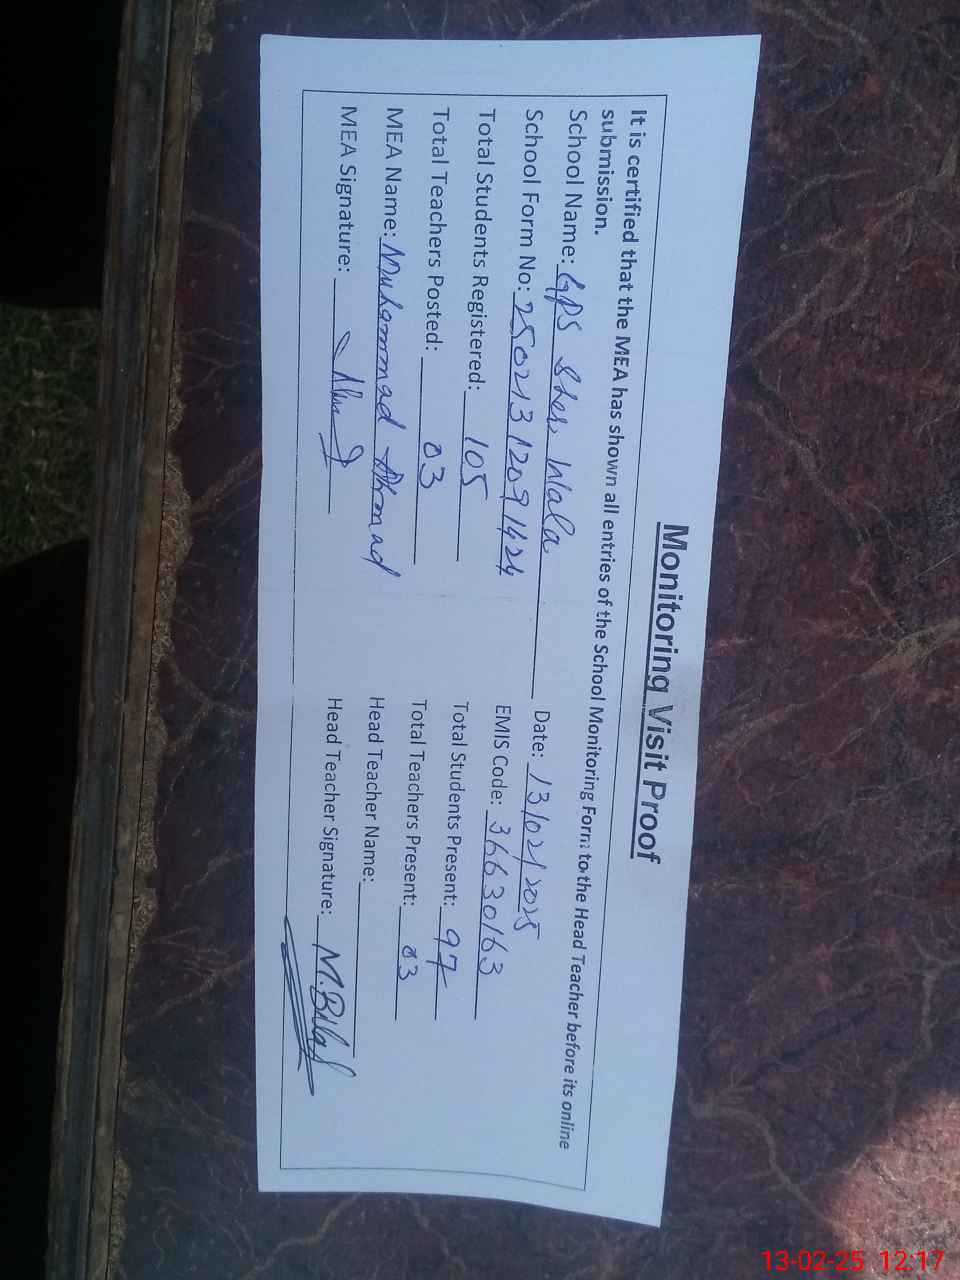 Monitoring Visit Proof
It is certified that the MEA has shown all entries of the School Monitoring Form to the Head Teacher before its online
submission.
School Name: GPS Sher Wala Date: 13/02/2025
School Form No: 25021312091424 EMIS Code: 36630163
Total Students Registered: 105 Total Students Present: 97
Total Teachers Posted: 03 Total Teachers Present: 03
MEA Name: Muhammad Ahmad Head Teacher Name:
MEA Signature: Head Teacher Signature: M. Bilal
13-02-25 12:17